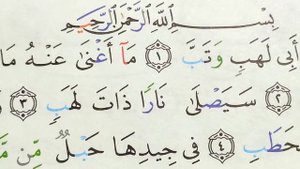 بِسْمِ ٱللَّهِ ٱلرَّحْمَٰنِ ٱلرَّحِيمِ
أَبِى لَهَبٍ وَتَبَّ ١ مَآ أَغْنَىٰ عَنْهُ مَا
٢ سَيَصْلَىٰ نَارًا ذَاتَ لَهَبٍ ٣
حَطَبِ ٤ فِى جِيدِهَا حَبْلٌ مِّن